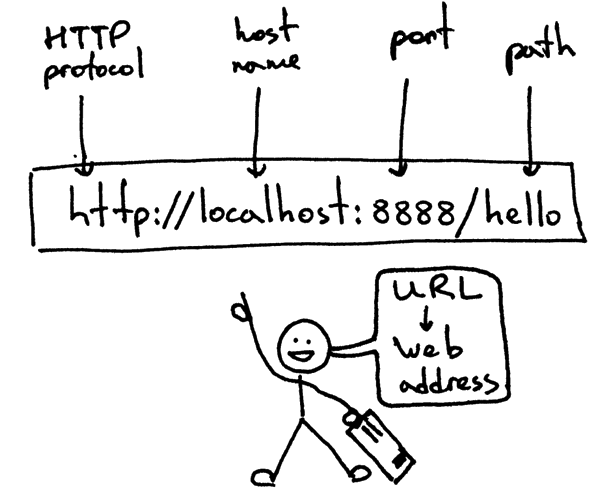 HTTP
protocol
host
name
port
path
http://localhost:8888/hello
URL
web
address